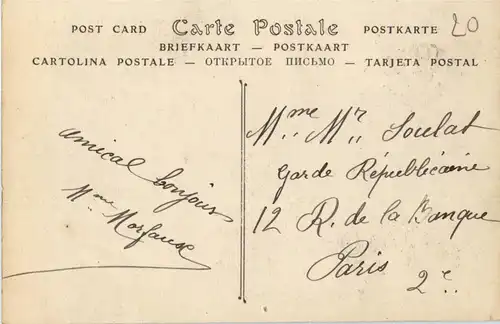 POST CARD Carte Postale POSTKARTE
BRIEFKAART — POSTKAART
CARTOLINA POSTALE — ОТКРЫТОЕ ПИСЬМО — TARJETA POSTAL
20
amical bonjour
Mme Morfaux
Mme Mr Soulat
Garde Républicaine
12 R. de la Banque
Paris
2e